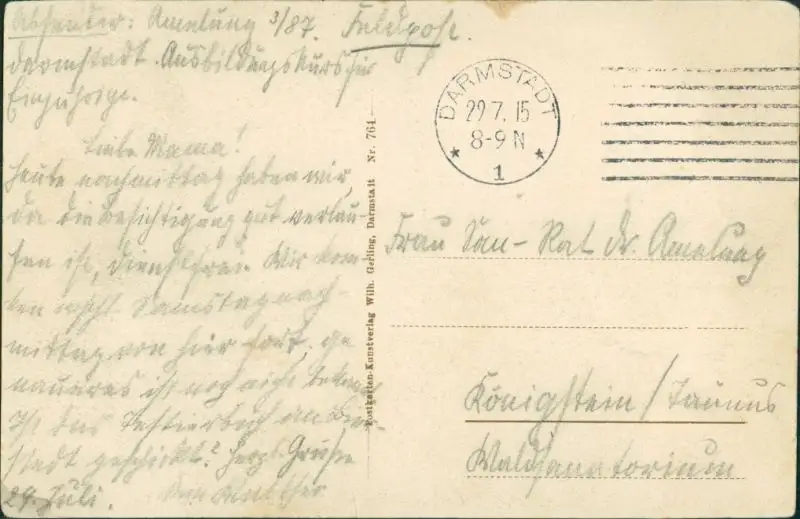 Absender: Amelung 3/87. Feldpost.
Darmstadt. Ausbildungskurs für
Einjährige.
Liebe Mama!
Heute nachmittag haben wir,
da die Besichtigung gut verlau-
fen ist, dienstfrei. Wir kom-
men Samstag nach-
mittag von hier fort, ge
naueres ist noch nicht bekannt.
Ist das Testierbuch an
stadt geschickt? Herzl. Grüße
29. Juli. Dein Walther
Postkarten-Kunstverlag Wilh. Gerling, Darmstadt Nr. 764.
DARMSTADT
29.7.15
8-9 N
* 1 *
Frau San-Rat Dr. Amelung
Königstein/Taunus
Waldsanatorium